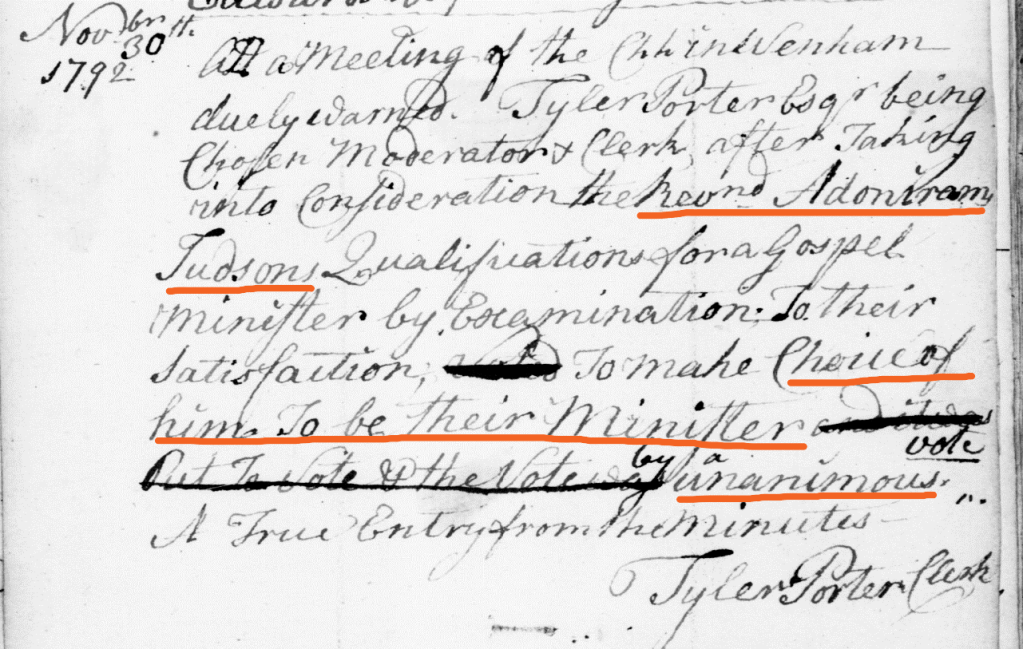 Novbr
30th
1792
Att a Meeting of the Chh in Wenham
duely warned. Tyler Porter Esqr being
Chosen Moderator & Clerk, after Taking
into Consideration the Revnd Adoniram
Judsons Qualifications for a Gospel
Minister by Examination: To their
Satisfaction, To make Choice of
him To be their Minister and it was
Put To Vote & the Vote was by a unanimous vote
A True Entry from the minutes
Tyler Porter Clerk